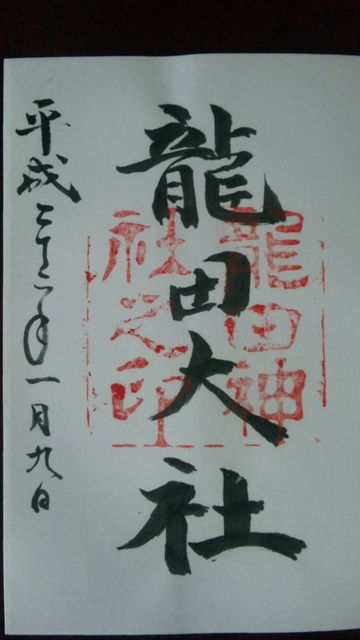 龍田大社
龍田神
社之印
平成二 年一月九日